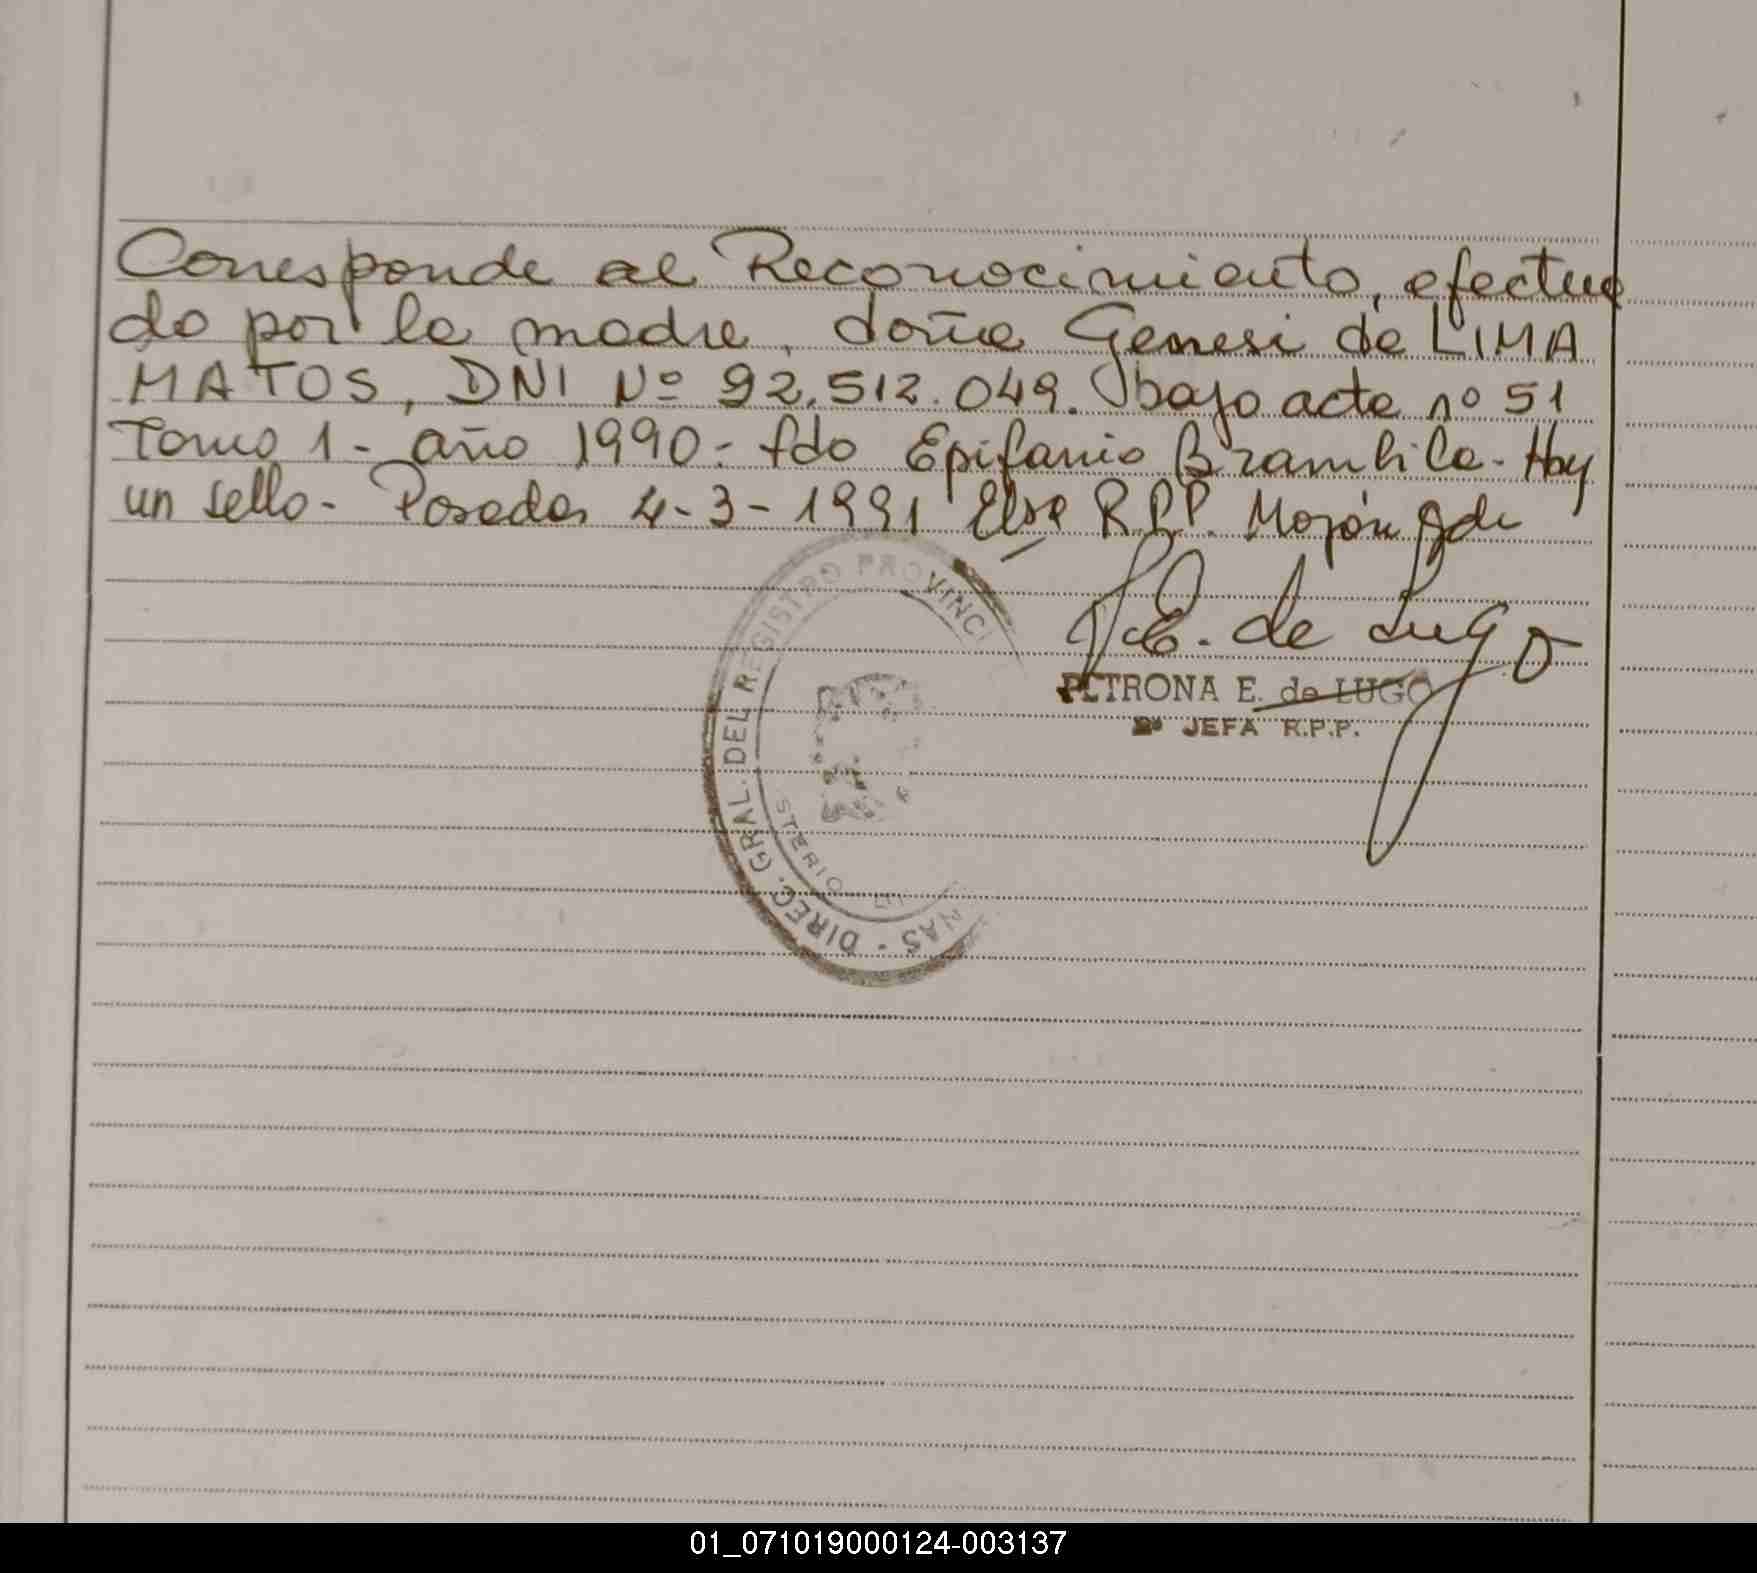 Corresponde al Reconocimiento, efectua
do por la madre, doña Genesi de LIMA
MATOS, DNI Nº 92.512.049. bajo acta nº 51
Tomo 1 - año 1990 - fdo Epifanio Brambila - Hay
un sello - Posadas 4-3-1991 Elsa R.P.P.
P.E. de Lugo
PETRONA E. de LUGO
2º JEFA R.P.P.
DIREC. GRAL. DEL REGISTRO PROVINCI
NAS
STERIO
01_071019000124-003137